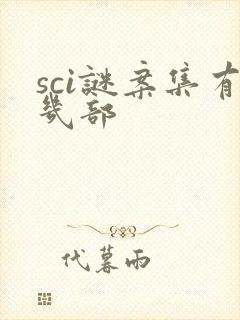 sci謎案集有
幾部
代暮雨